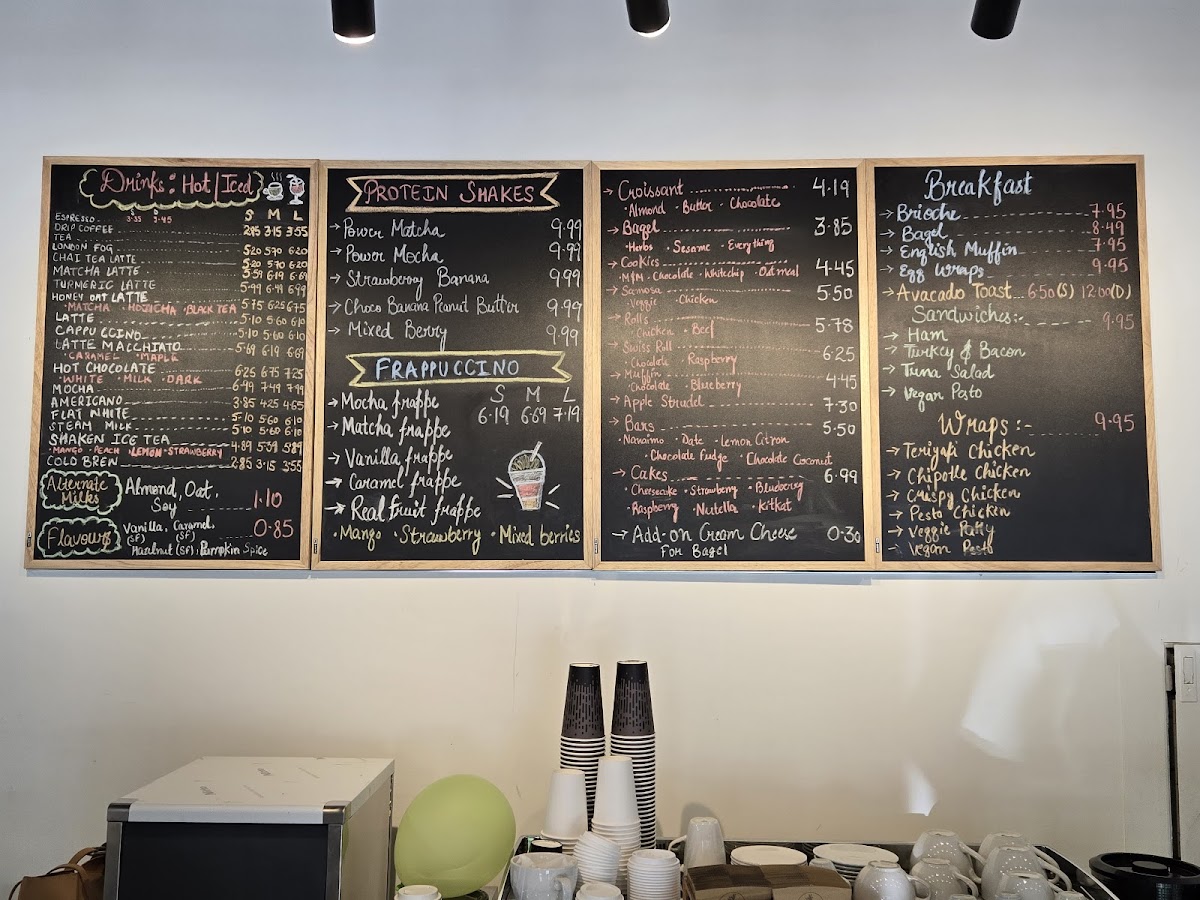 Drinks: Hot/Iced
S M L
ESPRESSO 3.35 3.45
DRIP COFFEE 2.85 3.15 3.55
TEA
LONDON FOG 5.20 5.70 6.20
CHAI TEA LATTE 5.20 5.70 6.20
MATCHA LATTE 5.59 6.19 6.69
TURMERIC LATTE 5.99 6.49 6.99
HONEY OAT LATTE
• MATCHA • HOJICHA • BLACK TEA 5.75 6.25 6.75
LATTE 5.10 5.60 6.10
CAPPUCCINO 5.10 5.60 6.10
LATTE MACCHIATO 5.69 6.19 6.69
• CARAMEL • MAPLE
HOT CHOCOLATE 6.25 6.75 7.25
• WHITE • MILK • DARK
MOCHA 6.99 7.49 7.99
AMERICANO 3.85 4.25 4.65
FLAT WHITE 5.10 5.60 6.10
STEAM MILK 5.10 5.60 6.10
SHAKEN ICE TEA 4.89 5.39 5.89
• MANGO • PEACH • LEMON • STRAWBERRY
COLD BREW 2.85 3.15 3.55
Alternate Milks
Almond, Oat, Soy 1.10
Flavours
Vanilla, Caramel, 0.85
(SF) (SF)
Hazelnut (SF), Pumpkin Spice
PROTEIN SHAKES
→ Power Matcha 9.99
→ Power Mocha 9.99
→ Strawberry Banana 9.99
→ Choco Banana Peanut Butter 9.99
→ Mixed Berry 9.99
FRAPPUCCINO
S M L
→ Mocha frappe 6.19 6.69 7.19
→ Matcha frappe
→ Vanilla frappe
→ Caramel frappe
→ Real fruit frappe
• Mango • Strawberry • Mixed berries
→ Croissant 4.19
• Almond • Butter • Chocolate
→ Bagel 3.85
• Herbs • Sesame • Everything
→ Cookies 4.45
• M&M • Chocolate • Whitechip • Oatmeal
→ Samosa 5.50
• Veggie • Chicken
→ Rolls 5.78
• Chicken • Beef
→ Swiss Roll 6.25
• Chocolate • Raspberry
→ Muffin 4.45
• Chocolate • Blueberry
→ Apple Strudel 7.30
→ Bars 5.50
• Nanaimo • Date • Lemon Citron
• Chocolate fudge • Chocolate Coconut
→ Cakes 6.99
• Cheesecake • Strawberry • Blueberry
• Raspberry • Nutella • Kitkat
→ Add-on Cream Cheese 0.30
For Bagel
Breakfast
→ Brioche 7.95
→ Bagel 8.49
→ English Muffin 7.95
→ Egg Wraps 9.95
→ Avacado Toast 6.50(S) 12.00(D)
Sandwiches:- 9.95
→ Ham
→ Turkey & Bacon
→ Tuna Salad
→ Vegan Pesto
Wraps:- 9.95
→ Teriyaki Chicken
→ Chipotle Chicken
→ Crispy Chicken
→ Pesto Chicken
→ Veggie Patty
→ Vegan Pesto